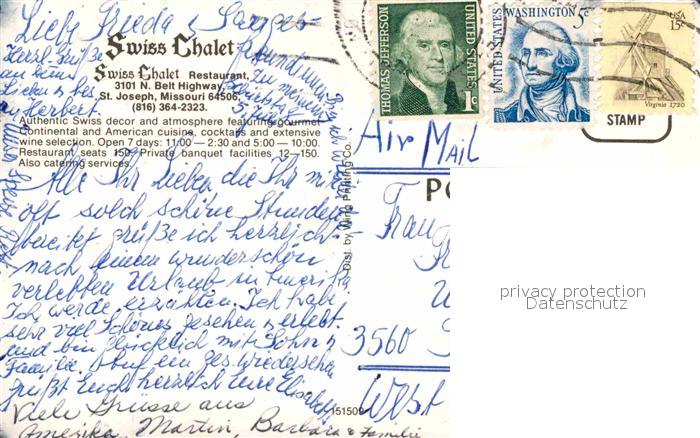 Liebe Frieda &
Swiss Chalet
Swiss Chalet Restaurant,
3101 N. Belt Highway,
St. Joseph, Missouri 64506
(816) 364-2323.
Authentic Swiss decor and atmosphere featuring gourmet
continental and American cuisine, cocktails and extensive
wine selection. Open 7 days: 11:00 — 2:30 and 5:00 — 10:00.
Restaurant seats 150. Private banquet facilities 12—150.
Also catering services.
Herzl. Grüße
an
Herbert
Alle Ihr Lieben die Ihr mir
oft solch schöne Stunden
bereitet grüße ich herzlich
nach einem wunderschön
verlebten Urlaub in Amerika
Ich werde erzählen. Ich habe
sehr viel Schönes gesehen & erlebt
und bin glücklich mit Sohn &
Familie. Auf ein ges. Wiedersehen
grüßt Euch herzlich Eure Elisabeth
Viele Grüsse aus
Amerika Martin, Barbara & Familie
Dist. by Wing Printing Co.
151509
THOMAS JEFFERSON
UNITED STATES
1c
UNITED STATES
WASHINGTON 5c
USA
15c
Virginia 1720
STAMP
Air Mail
PO
Frau
3560
West
privacy protection
Datenschutz